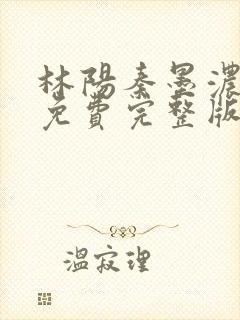 林陽秦墨濃
免費完整版
溫寂理